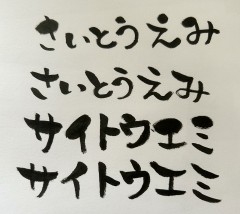 さいとうえみ
さいとうえみ
サイトウエミ
サイトウエミ